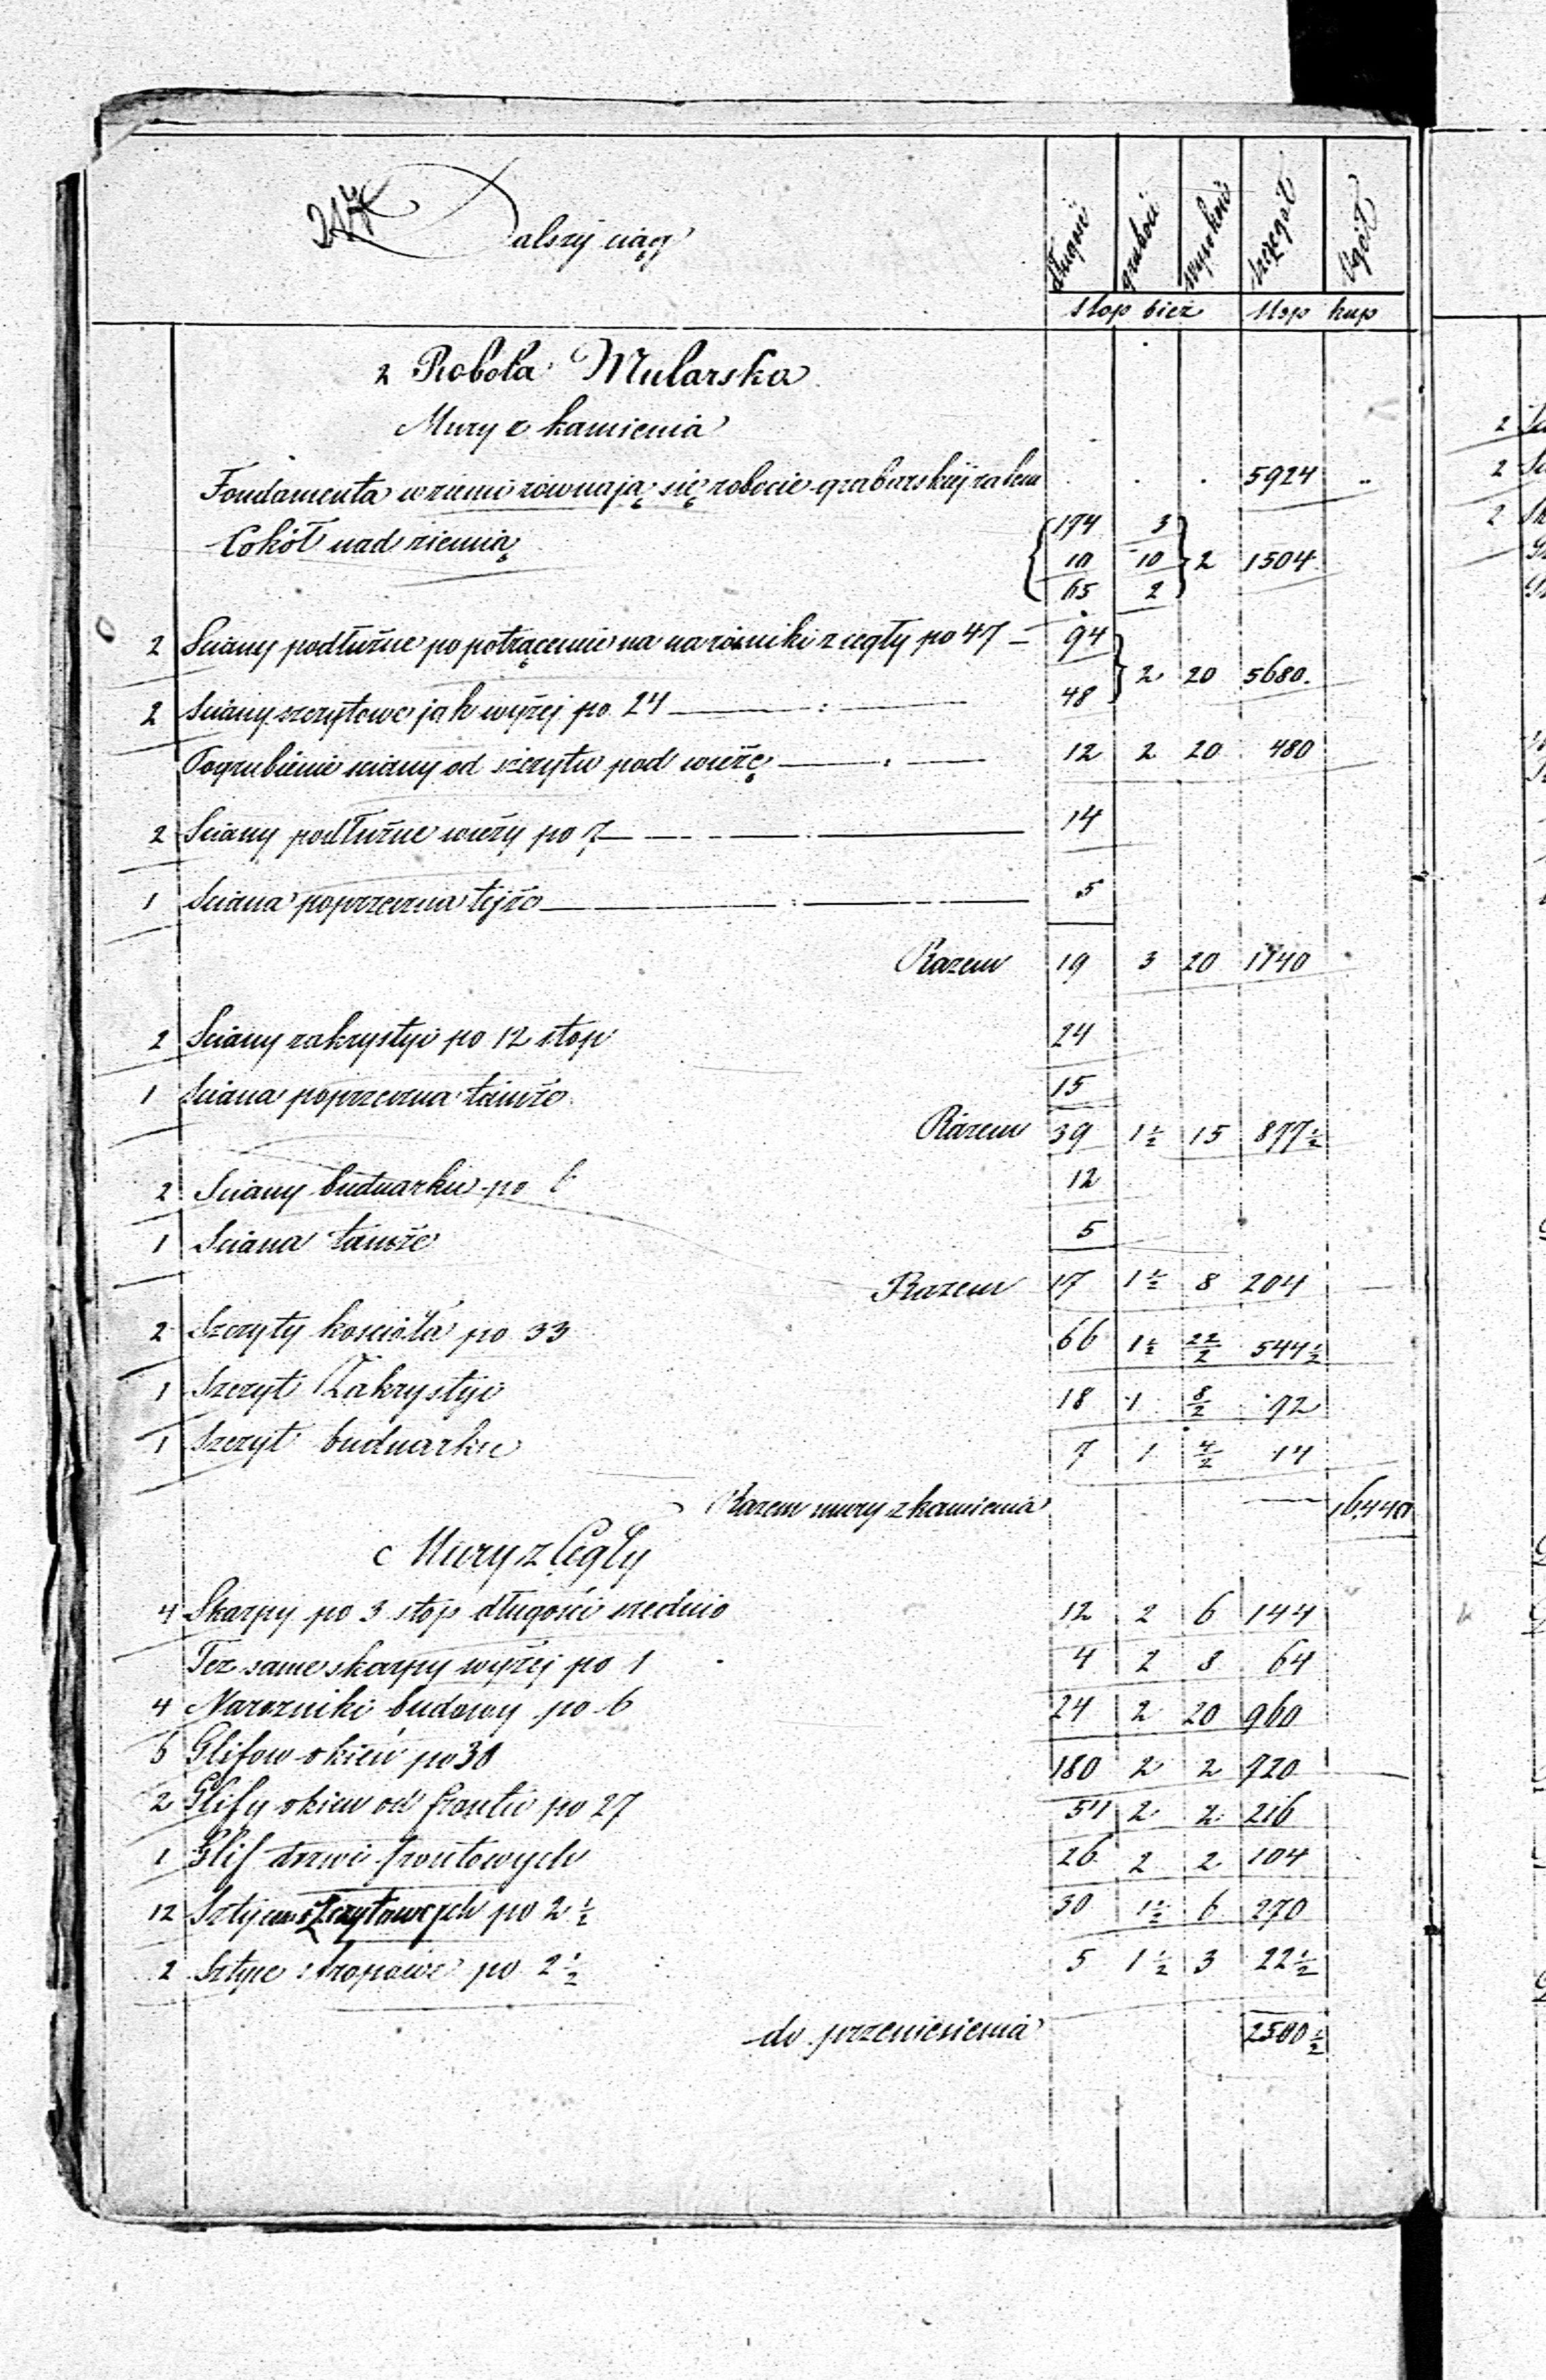 Dalszy ciąg
długość grubość wysokość szczegół Ogół
stop bież stop kup
2 Robota Mularska
Mury z kamienia
Fondamenta w ziemi równają się robocie grabarskiej razem . . . 5924
Cokół nad ziemią 174 3
10 10 2 1504
65 2
2 Sciany podłużne po potrącenie na narożniki z cegły po 47 94
2 20 5680
2 Sciany szczytowe jak wyżej po 24 48
Pogrubienie sciany od szczytu pod wieżę 12 2 20 480
2 Sciany podłużne wieży po 7 14
1 Sciana poprzeczna tejże 5
Razem 19 3 20 1140
2 Sciany zakrystyi po 12 stop 24
1 Sciana poprzeczna tamże 15
Razem 39 1½ 15 877½
2 Sciany buduarku po 6 12
1 Sciana tamże 5
Razem 17 1½ 8 204
2 Szczyty kościoła po 33 66 1½ 22/2 544½
1 Szczyt Zakrystyi 18 1 8/2 72
1 Szczyt buduarku 7 1 4/2 14
Razem mury z kamienia 16440
c Mury z Cegły
4 Skarpy po 3 stop długości srednio 12 2 6 144
Też same skarpy wyżej po 1 4 2 8 64
4 Narozniki budowy po 6 24 2 20 960
6 Glifow okien po 30 180 2 2 720
2 Glify okien od frontu po 27 54 2 2 216
1 Glif drzwi frontowych 26 2 2 104
12 szczytowych po 2½ 30 1½ 6 270
2 po 2½ 5 1½ 3 22½
do przeniesienia 2500½